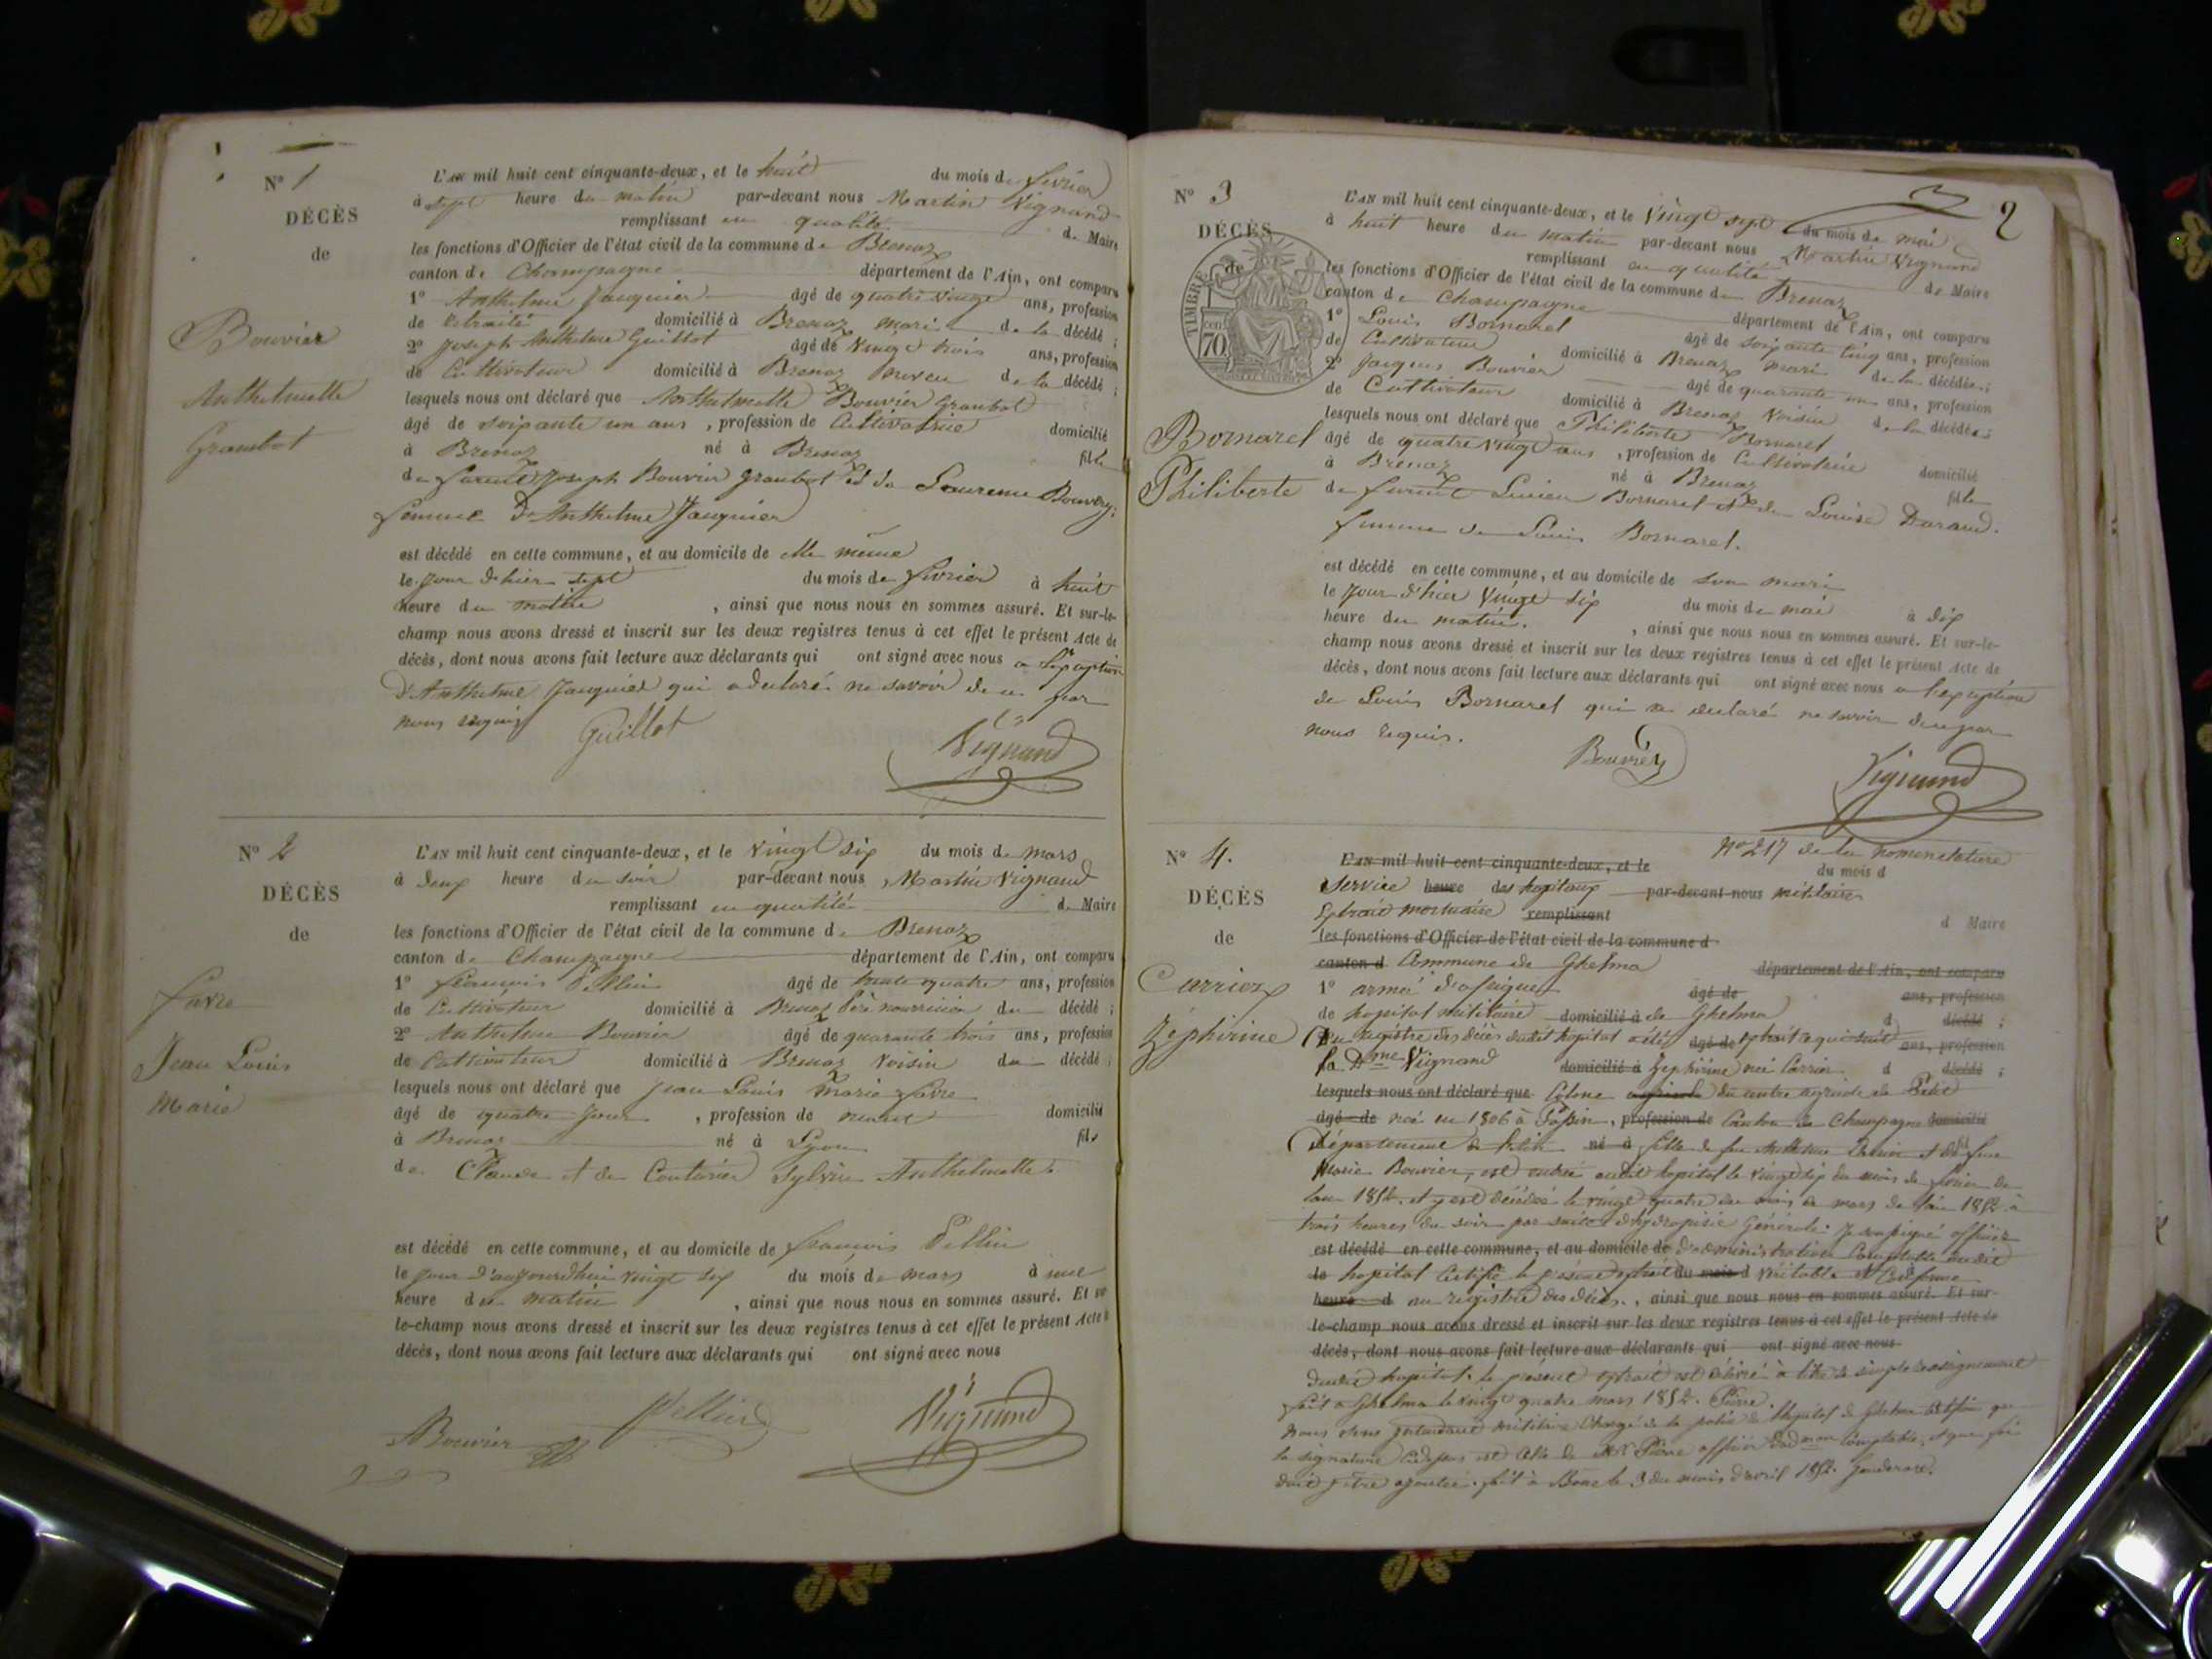 N° 1
DÉCÈS
de
Bouvier
Anthelmette
Graubot
L'AN mil huit cent cinquante-deux, et le huit du mois de février
à sept heure du matin par-devant nous Martin Vignand
remplissant en qualité de Maire
les fonctions d'Officier de l'état civil de la commune de Brenaz
canton de Champagne département de l'Ain, ont comparu
1° Anthelme Jauquier âgé de quatre vingt ans, profession
de retraité domicilié à Brenaz mari de la décédé ;
2° Joseph Anthelme Guillot âgé de vingt trois ans, profession
de Cultivateur domicilié à Brenaz neveu de la décédé ;
lesquels nous ont déclaré que Anthelmette Bouvier Graubot
âgé de soixante un ans, profession de Cultivatrice domicilié
à Brenaz né à Brenaz fille
de furent Joseph Bouvier Graubot et de Laurence Bouvery;
femme d'Anthelme Jauquier
est décédé en cette commune, et au domicile de elle même
le jour d'hier sept du mois de février à huit
heure du matin , ainsi que nous nous en sommes assuré. Et sur-le-
champ nous avons dressé et inscrit sur les deux registres tenus à cet effet le présent Acte de
décès, dont nous avons fait lecture aux déclarants qui ont signé avec nous a l'exception
d'Anthelme Jauquier qui a déclaré ne savoir de ce par
nous requis
Guillot
Vignand
N° 2
DÉCÈS
de
favre
Jean Louis
Marie
L'AN mil huit cent cinquante-deux, et le vingt six du mois de mars
à deux heure du soir par-devant nous Martin Vignand
remplissant en qualité de Maire
les fonctions d'Officier de l'état civil de la commune de Brenaz
canton de Champagne département de l'Ain, ont comparu
1° françois Pellin âgé de trente quatre ans, profession
de Cultivateur domicilié à Brenaz père nourricier du décédé ;
2° Anthelme Bouvier âgé de quarante trois ans, profession
de Cultivateur domicilié à Brenaz voisin du décédé ;
lesquels nous ont déclaré que Jean Louis Marie favre
âgé de quatre jour , profession de néant domicilié
à Brenaz né à Lyon fils
de Claude et de Couturier Sylvie Anthelmette
est décédé en cette commune, et au domicile de françois Pellin
le jour d'aujourdhui vingt six du mois de mars à une
heure du matin , ainsi que nous nous en sommes assuré. Et sur
le-champ nous avons dressé et inscrit sur les deux registres tenus à cet effet le présent Acte de
décès, dont nous avons fait lecture aux déclarants qui ont signé avec nous
Bouvier
Vignand
2
N° 3
DÉCÈS
de
TIMBRE
cen
70
Bornarel
Philiberte
L'AN mil huit cent cinquante-deux, et le vingt sept du mois de mai
à huit heure du matin par-devant nous Martin Vignand
remplissant en qualité de Maire
les fonctions d'Officier de l'état civil de la commune de Brenaz
canton de Champagne département de l'Ain, ont comparu
1° Louis Bornarel âgé de soixante cinq ans, profession
de Cultivateur domicilié à Brenaz mari de la décédée ;
2° Jacques Bouvier âgé de quarante un ans, profession
de Cultivateur domicilié à Brenaz voisin de la décédée ;
lesquels nous ont déclaré que Philiberte Bornarel
âgé de quatre vingt ans , profession de Cultivatrice domicilié
à Brenaz né à Brenaz fille
de furent Lucien Bornarel et de Louise Durand.
femme de Louis Bornarel.
est décédé en cette commune, et au domicile de son mari
le jour d'hier vingt six du mois de mai à dix
heure du matin. , ainsi que nous nous en sommes assuré. Et sur-le-
champ nous avons dressé et inscrit sur les deux registres tenus à cet effet le présent Acte de
décès, dont nous avons fait lecture aux déclarants qui ont signé avec nous a l'exception
de Louis Bornarel qui a déclaré ne savoir de ce par
nous requis.
Vignand
N° 4.
DÉCÈS
de
Curriez
Zéphirine
N° 217 de la nomenclature
L'AN mil huit cent cinquante-deux, et le du mois d
Service heure des hopitaux par-devant nous militaires
Extrait mortuaire remplissant d Maire
les fonctions d'Officier de l'état civil de la commune d
canton d Commune de Ghelma département de l'Ain, ont comparu
1° armée d'afrique âgé de ans, profession
de hopital militaire domicilié à de Ghelma d décédé ;
Du registre des décès dudit hopital a été âgé de extrait ce qui suit ans, profession
la Dme Vignand domicilié à Zephirine née Carrier d décédé ;
lesquels nous ont déclaré que Colone du centre agricole de Petit
âgé de née en 1806 à profession de Canton de Champagne domicilié
Département de l'Ain né à fille de feu Anthelme et de feue
Marie Bouvier, est entrée audit hopital le vingt six du mois de février de
l'an 1852. et y est décédée le vingt quatre du mois de mars de l'an 1852 à
trois heures du soir par suite d'hydropisie Générale. Je soussigné officier
est décédé en cette commune, et au domicile de d'administration Comptable dudit
le hopital Certifie le présent extrait du mois d véritable et Conforme
heure d au registre des décès. , ainsi que nous nous en sommes assuré. Et sur-
le-champ nous avons dressé et inscrit sur les deux registres tenus à cet effet le présent Acte de
décès, dont nous avons fait lecture aux déclarants qui ont signé avec nous
dudit hopital. le présent extrait est délivré à titre de simple renseignement
fait a Ghelma le vingt quatre mars 1852.
Nous Sous Intendant militaire Chargé de la police de l'hopital de Ghelma certifions que
la signature Cidessus est Celle de Mr officier Comptable, et que foi
doit y être ajoutée. fait à Bone le 3 du mois d'avril 1852.